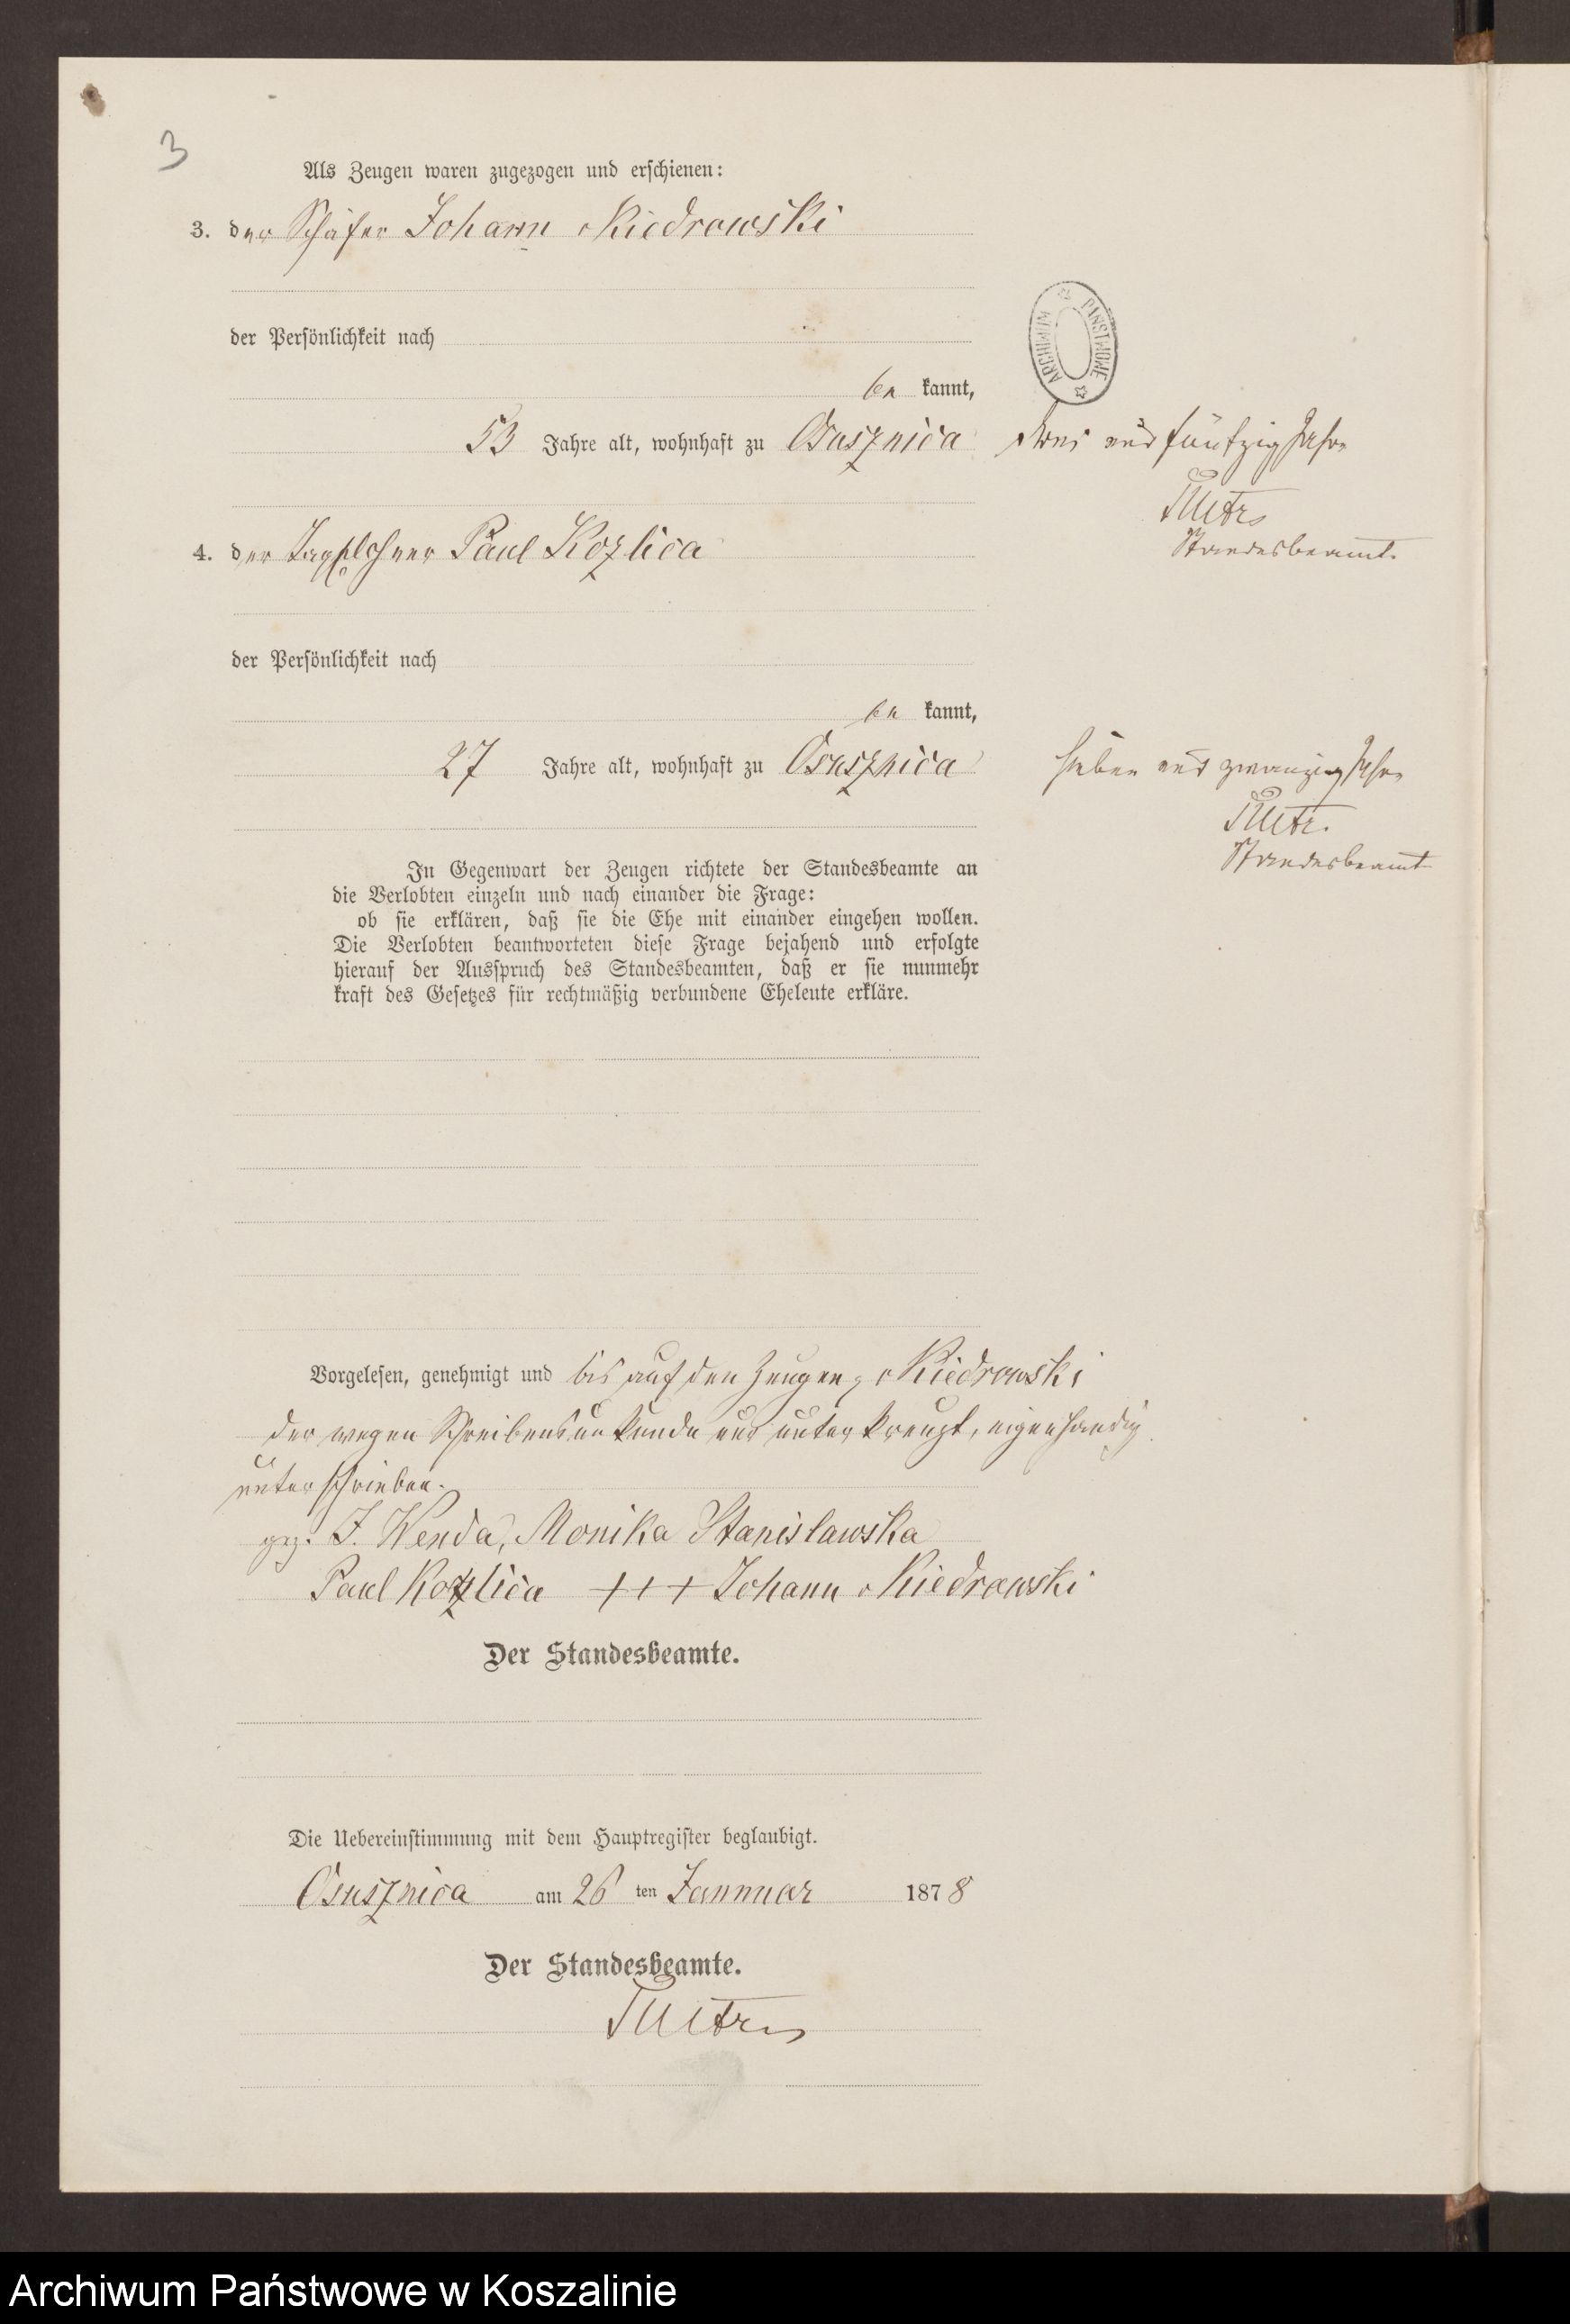 3
Als Zeugen waren zugezogen und erschienen:
3. der Schäfer Johann v Kiedrowski
der Persönlichkeit nach
be kannt,
53 Jahre alt, wohnhaft zu Osusznica
drei und fünfzig Jahre
Standesbeamt.
4. der Paul Kozlica
der Persönlichkeit nach
be kannt,
27 Jahre alt, wohnhaft zu Osusznica
sieben und zwanzig Jahre
Standesbeamt
ARCHIWUM PAŃSTWOWE
In Gegenwart der Zeugen richtete der Standesbeamte an
die Verlobten einzeln und nach einander die Frage:
ob sie erklären, daß sie die Ehe mit einander eingehen wollen.
Die Verlobten beantworteten diese Frage bejahend und erfolgte
hierauf der Ausspruch des Standesbeamten, daß er sie nunmehr
kraft des Gesetzes für rechtmäßig verbundene Eheleute erkläre.
Vorgelesen, genehmigt und bis auf den Zeugen v Kiedrowski
der wegen Schreibensunkunde nur unterkreuzt, eigenhändig
unterschrieben.
gez. J. Wenda, Monika Stanislawska
Paul Kozlica +++ Johann v Kiedrowski
Der Standesbeamte.
Die Uebereinstimmung mit dem Hauptregister beglaubigt.
Osusznica am 26 ten Jannuar 1878
Der Standesbeamte.
Archiwum Państwowe w Koszalinie